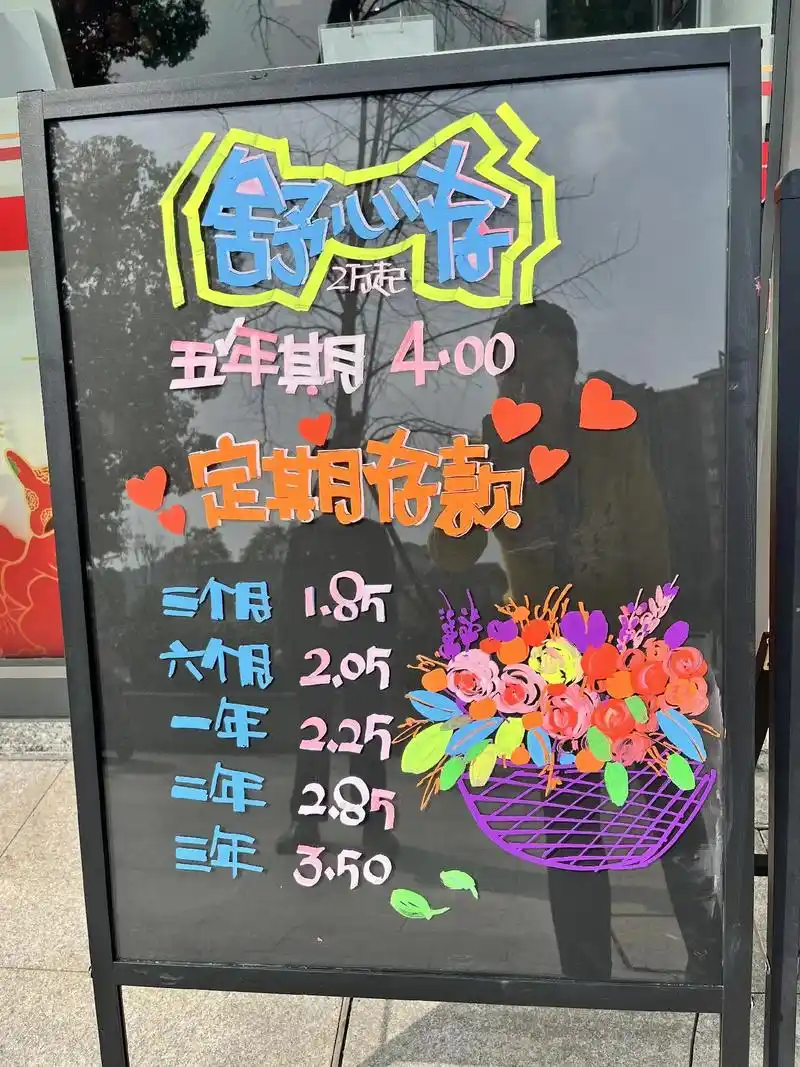 舒心存
2万起
五年期 4.00
定期存款
三个月 1.85
六个月 2.05
一年 2.25
二年 2.85
三年 3.50